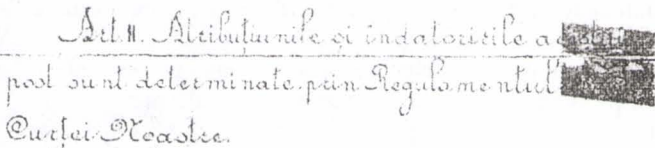 Art. II. Atribuțiunile și îndatoririle acestui
post sunt determinate prin Regulamentul
Curței Noastre.